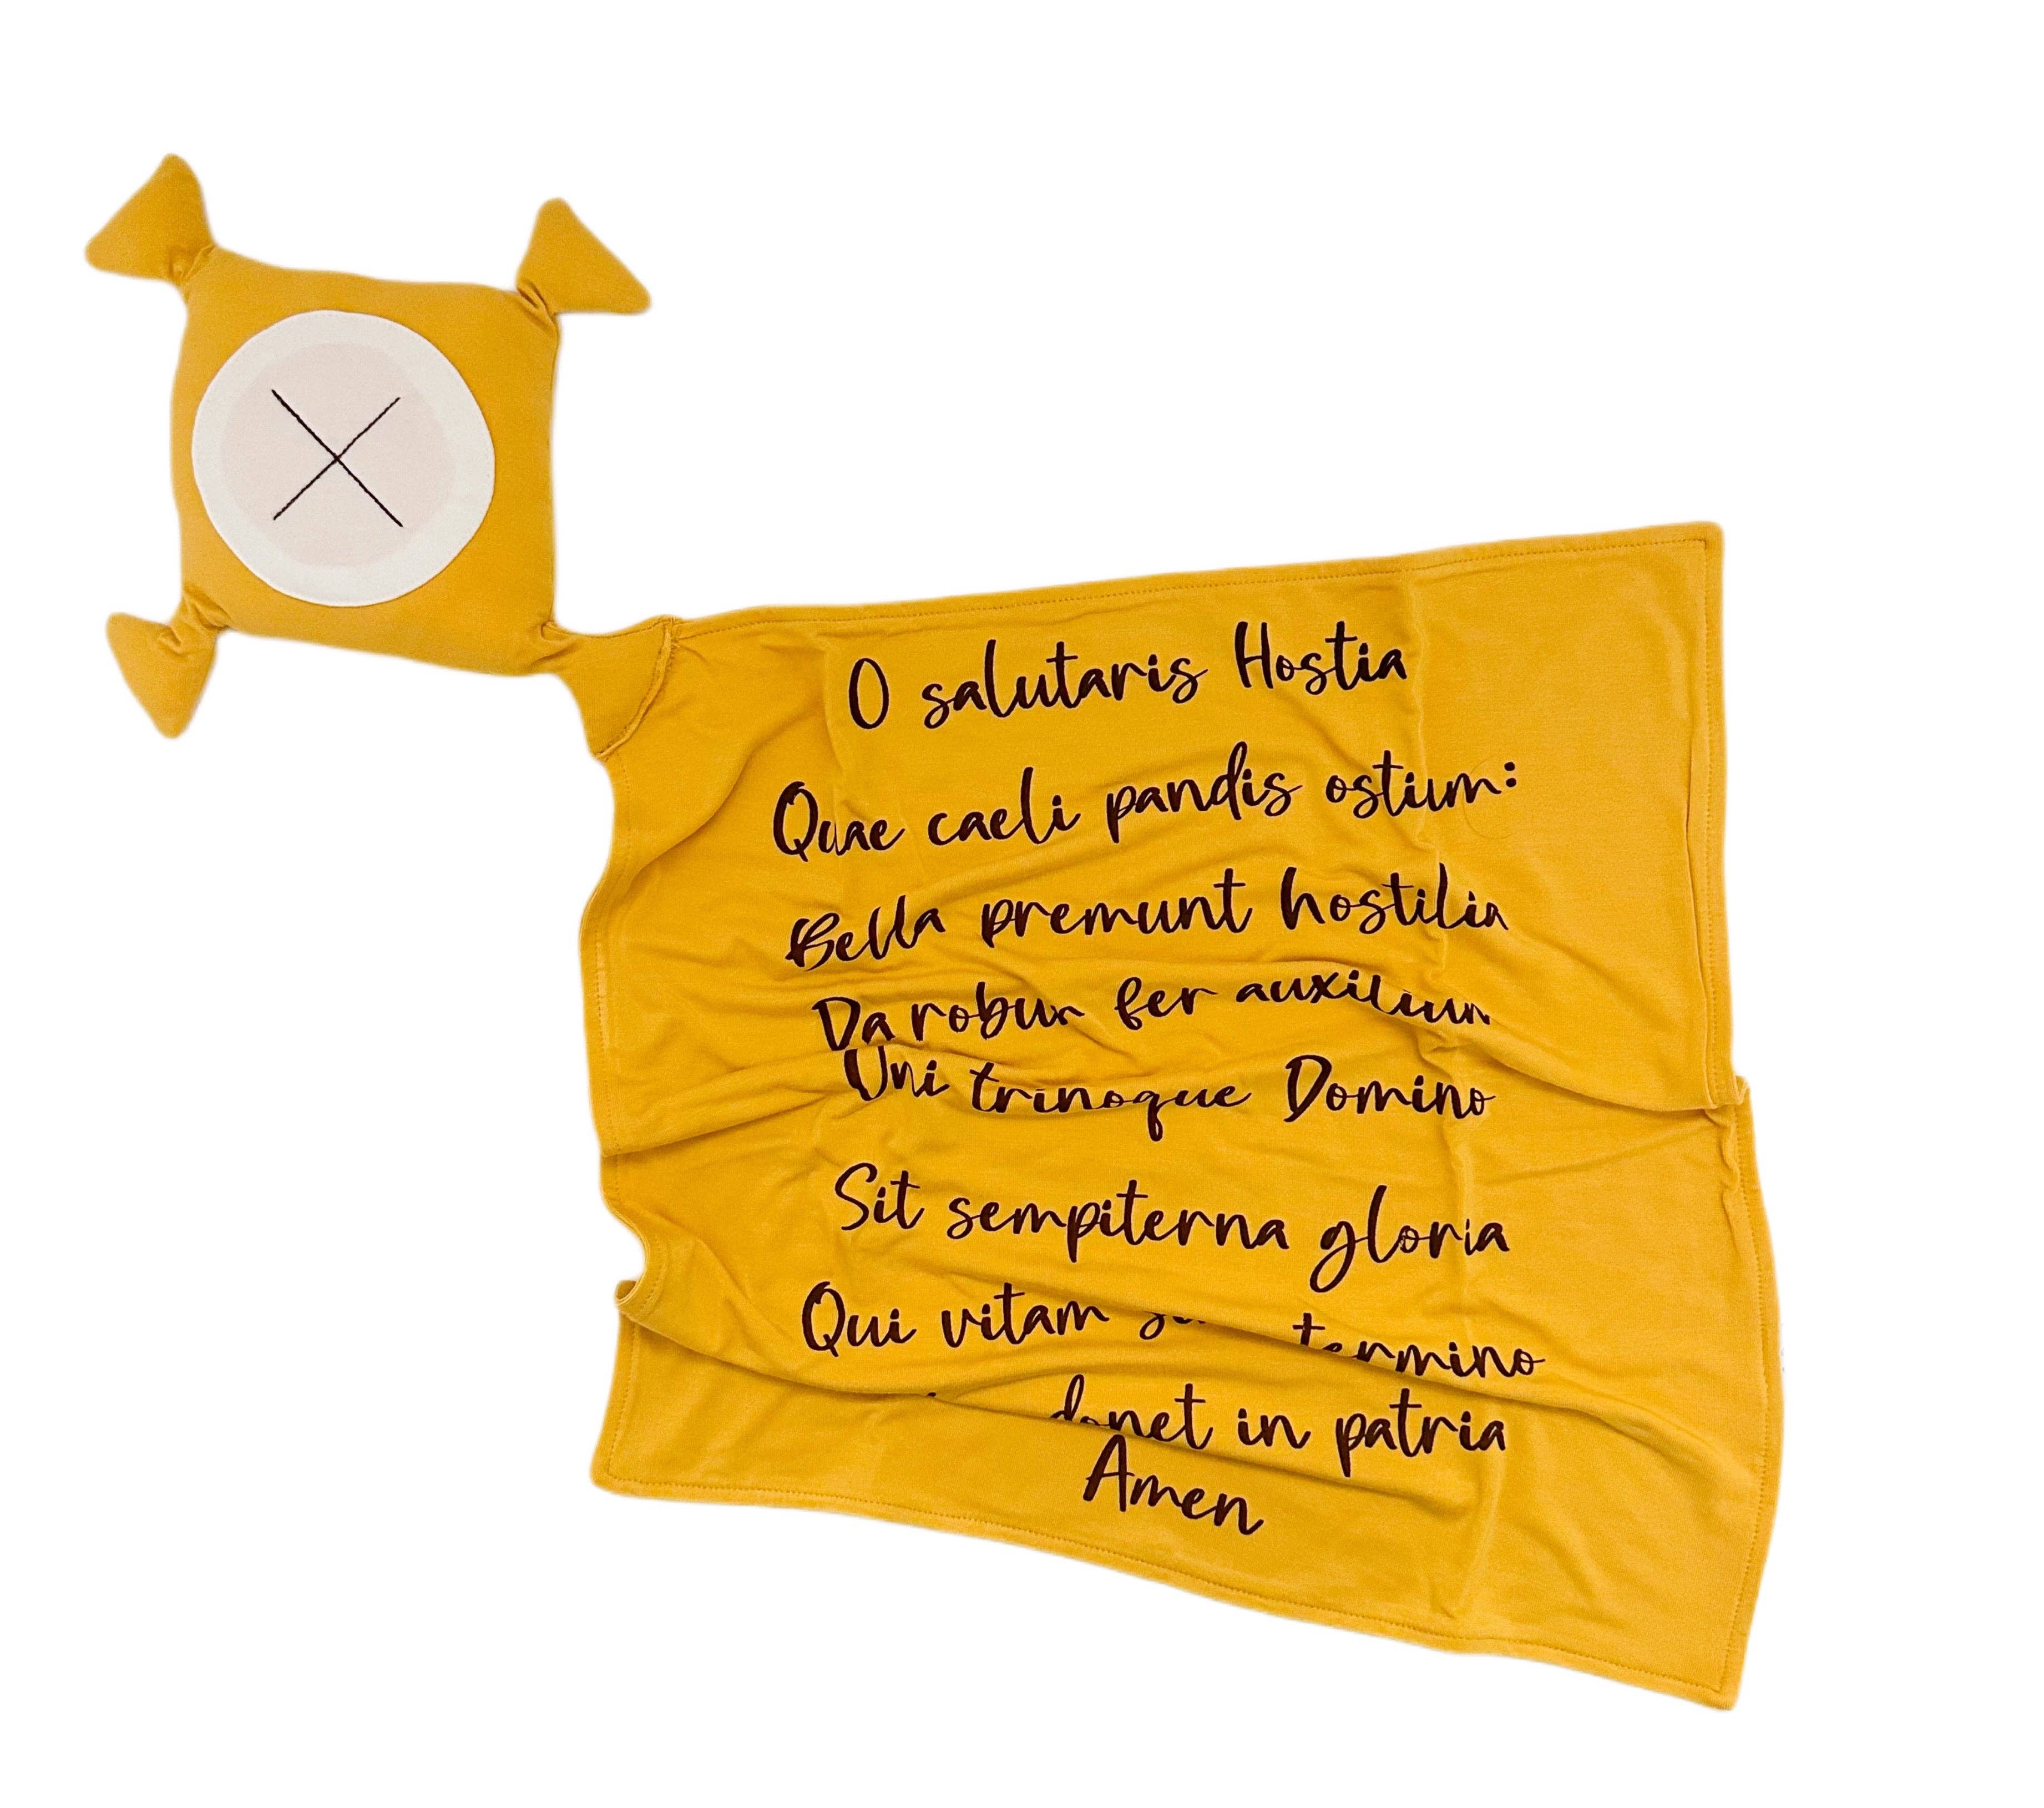 O salutaris Hostia
Quae caeli pandis ostium:
Bella premunt hostilia
Da robur fer auxilium
Uni trinoque Domino
Sit sempiterna gloria
Qui vitam termino
donet in patria
Amen